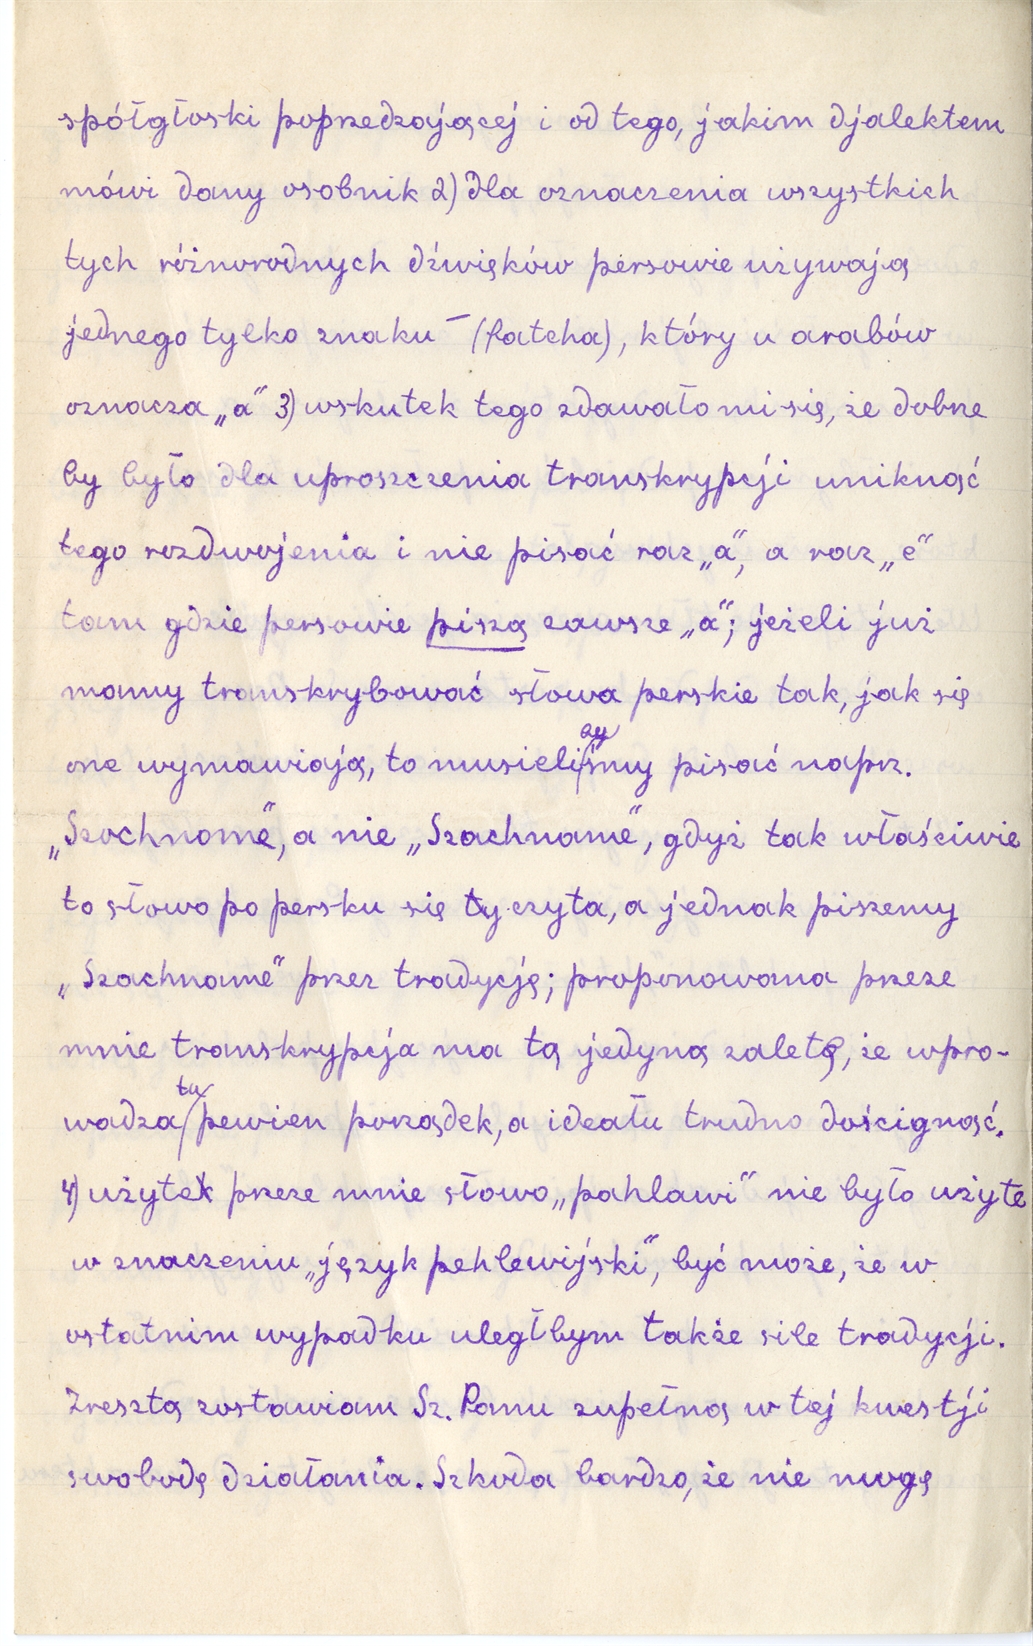 spółgłoski poprzedzającej i od tego, jakim djalektem
mówi dany osobnik 2) dla oznaczenia wszystkich
tych różnorodnych dźwięków persowie używają
jednego tylko znaku – (fatcha), który u arabów
oznacza „a” 3) wskutek tego zdawało mi się, że dobrze
by było dla uproszczenia transkrypcji uniknąć
tego rozdwojenia i nie pisać raz „a”, a raz „e”
tam gdzie persowie piszą zawsze „a”; jeżeli już
mamy transkrybować słowa perskie tak, jak się
one wymawiają, to musieliby śmy pisać naprz.
„Szochnome”, a nie „Szachname”, gdyż tak właściwie
to słowo po persku się czyta, a jednak piszemy
„Szachname” przez tradycję; proponowana przeze
mnie transkrypcja ma tą jedyną zaletę, że wpro-
wadza tu pewien porządek, a ideału trudno doścignąć.
4) użyte przeze mnie słowo „pahlawi” nie było użyte
w znaczeniu „język pehlewijski”, być może, że w
ostatnim wypadku uległbym także sile tradycji.
Zresztą zostawiam Sz. Panu zupełną w tej kwestji
swobodę działania. Szkoda bardzo, że nie mogę